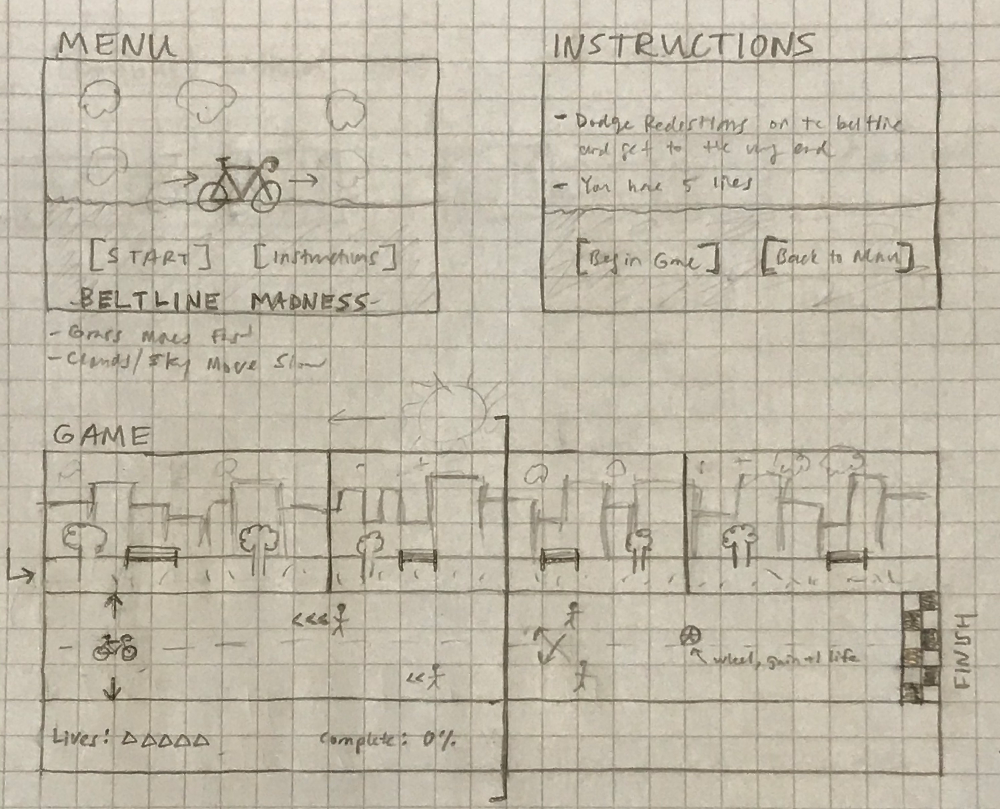 MENU
[START] [Instructions]
BELTLINE MADNESS
- Grass moves Fast
- Clouds/Sky Move Slow
INSTRUCTIONS
- Dodge Pedestrians on the beltline
and get to the very end
- You have 5 lives
[Begin Game] [Back to Menu]
GAME
<<<
<<
wheel, gain +1 life
FINISH
Lives: △△△△△ Complete: 0%